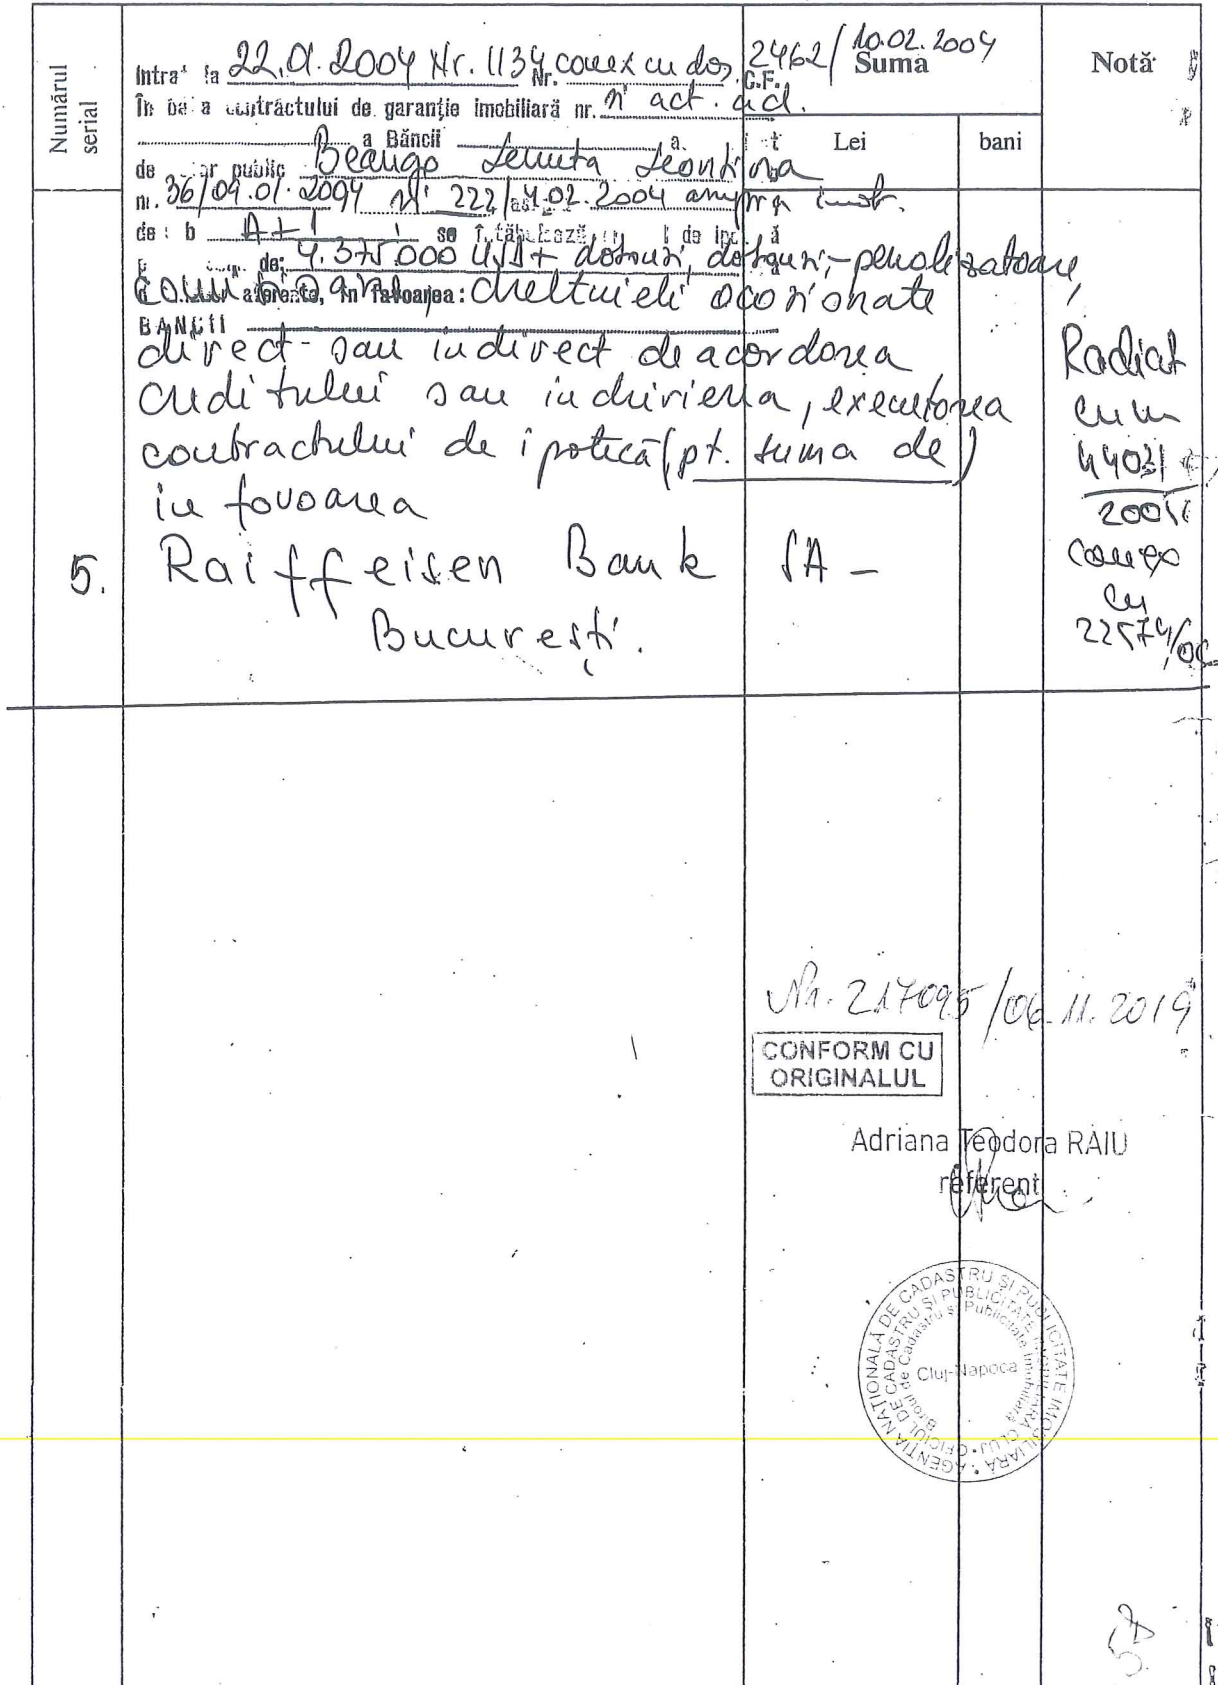 Numărul serial
Intrat la 22.01.2004 Nr. 1134 conex cu dos. 2462/10.02.2004
Nr. C.F.
Suma
Notă
În baza contractului de garanţie imobiliară nr. şi act. ad.
a Băncii
Lei
bani
de public Lenuta Leontina
nr. 36/09.01.2004 şi 222/ .02.2004 asupra imob.
de A+1 se
de: 4.375.000 USD+ dobânzi, dobânzi penalizatoare,
aferente, în favoarea: cheltuieli ocazionate
BĂNCII
direct sau indirect de acordarea
creditului sau închirierea, executarea
contractului de ipotecă (pt. suma de)
în favoarea
5. Raiffeisen Bank SA -
Bucureşti.
Radiat
cum
2005
conex
cu
22574/05
Nr. 217095/06.11.2019
CONFORM CU
ORIGINALUL
Adriana Teodora RAIU
referent
AGENŢIA NAŢIONALĂ DE CADASTRU ŞI PUBLICITATE IMOBILIARĂ
OFICIUL DE CADASTRU ŞI PUBLICITATE IMOBILIARĂ CLUJ
Biroul de Cadastru şi Publicitate Imobiliară
Cluj-Napoca